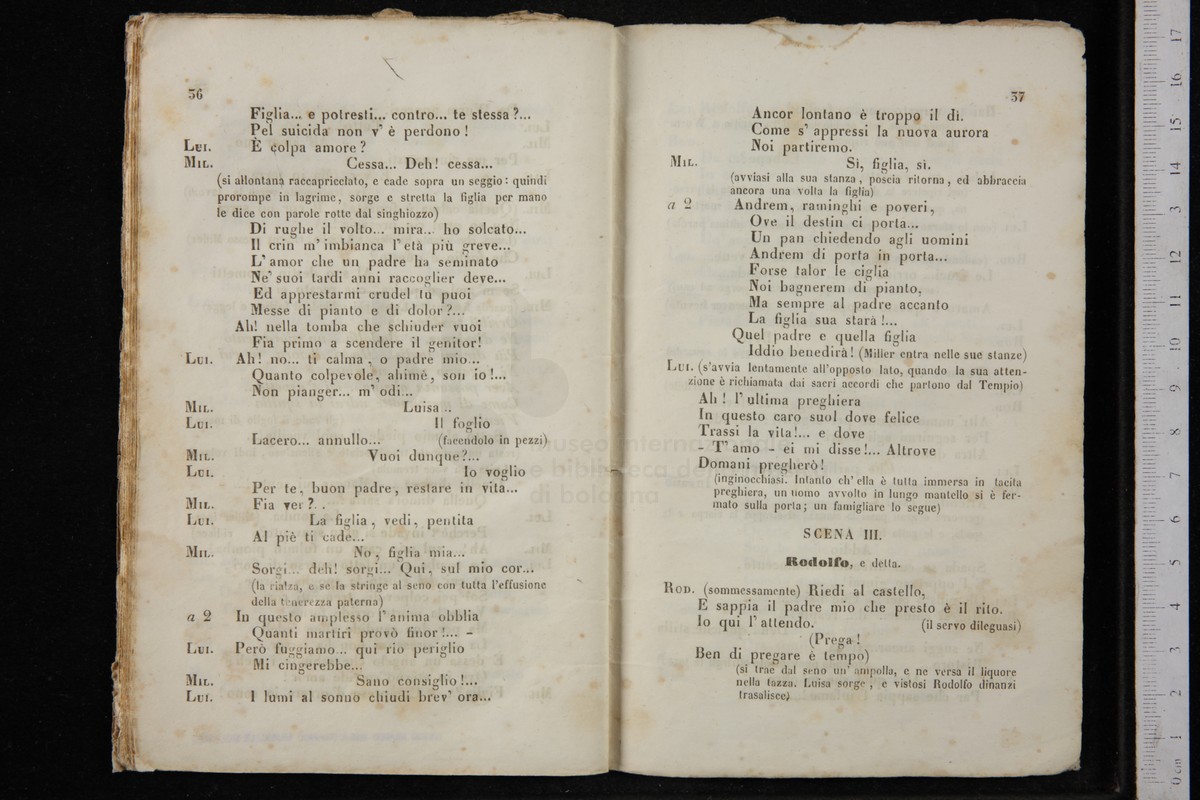 36
Figlia... e potresti... contro... te stessa ?...
Pel suicida non v' è perdono !
LUI. È colpa amore ?
MIL. Cessa... Deh! cessa...
(si allontana raccapricciato, e cade sopra un seggio: quindi
prorompe in lagrime, sorge e stretta la figlia per mano
le dice con parole rotte dal singhiozzo)
Di rughe il volto... mira... ho solcato...
Il crin m' imbianca l' età più greve...
L' amor che un padre ha seminato
Ne' suoi tardi anni raccoglier deve...
Ed apprestarmi crudel tu puoi
Messe di pianto e di dolor ?...
Ah! nella tomba che schiuder vuoi
Fia primo a scendere il genitor!
LUI. Ah! no... ti calma , o padre mio...
Quanto colpevole, ahimè, son io !...
Non pianger... m' odi...
MIL. Luisa ..
LUI. Il foglio
Lacero... annullo... (facendolo in pezzi)
MIL. Vuoi dunque?...
LUI. Io voglio
Per te, buon padre, restare in vita...
MIL. Fia ver ? . .
LUI. La figlia , vedi, pentita
Al piè ti cade...
MIL. No , figlia mia...
Sorgi... deh! sorgi... Qui, sul mio cor...
(la rialza, e se la stringe al seno con tutta l'effusione
della tenerezza paterna)
a 2 In questo amplesso l' anima obblia
Quanti martíri provò finor !... –
LUI. Però fuggiamo... qui rio periglio
Mi cingerebbe...
MIL. Sano consiglio !...
LUI. I lumi al sonno chiudi brev' ora...
37
Ancor lontano è troppo il dì.
Come s' appressi la nuova aurora
Noi partiremo.
MIL. Sì, figlia, sì.
(avviasi alla sua stanza , poscia ritorna , ed abbraccia
ancora una volta la figlia)
a 2 Andrem, raminghi e poveri,
Ove il destin ci porta...
Un pan chiedendo agli uomini
Andrem di porta in porta...
Forse talor le ciglia
Noi bagnerem di pianto,
Ma sempre al padre accanto
La figlia sua starà !...
Quel padre e quella figlia
Iddio benedirà! (Miller entra nelle sue stanze)
LUI. (s'avvia lentamente all'opposto lato, quando la sua atten-
zione è richiamata dai sacri accordi che partono dal Tempio)
Ah ! l' ultima preghiera
In questo caro suol dove felice
Trassi la vita!... e dove
– T' amo – ei mi disse!... Altrove
Domani pregherò!
(inginocchiasi. Intanto ch' ella è tutta immersa in tacita
preghiera, un uomo avvolto in lungo mantello si è fer-
mato sulla porta; un famigliare lo segue)
SCENA III.
Rodolfo, e detta.
ROD. (sommessamente) Riedi al castello,
E sappia il padre mio che presto è il rito.
Io qui l' attendo. (il servo dileguasi)
(Prega !
Ben di pregare è tempo)
(si trae dal seno un' ampolla, e ne versa il liquore
nella tazza. Luisa sorge , e vistosi Rodolfo dinanzi
trasalisce)
museo internazionale
e biblioteca della
di bologna
0 cm 1 2 3 4 5 6 7 8 9 10 11 12 13 14 15 16 17